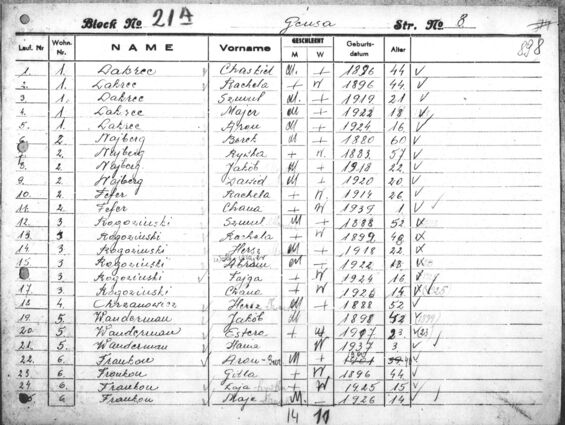 Block No 21A Gensa Str. No 8
898
GESCHLECHT Geburts-
Lauf. Nr Wohn. Nr. NAME Vorname M W datum Alter
1. 1. Dakrec Chaskiel M + 1896 44 ✓
2. 1. Dakrec Rachela + W 1896 44 ✓
3. 1. Dakrec Szmul M + 1919 21 ✓
4. 1. Dakrec Majer M + 1922 18 ✓
5. 1. Dakrec Aron M + 1924 16 ✓
6. 2. Najberg Berek M + 1880 60 ✓
7. 2. Najberg Rywka + W 1883 57 ✓
8. 2. Najberg Jakób M + 1918 22 ✓
9. 2. Najberg Dawid M + 1920 20 ✓
10. 2. Fefer Rachela + W 1914 26 ✓
11. 2. Fefer Chana + W 1939 1 ✓
12. 3 Rogoziński Szmul M + 1888 52 x
13. 3 Rogoziński Rachela + W 1899 x
14. 3 Rogoziński Hersz M + 1918 22 x
15. 3 Rogoziński Abram M + 1922 18 x
3 Rogoziński Fajga + W 1924 16 x
17. 3 Rogoziński Chana + W 1926
18. 4 Chrzanowicz Hersz M + 1888 52 ✓
19. 5. Wanderman Jakób M 1898 42
20. 5. Wanderman Estera + W 1917 23
21. 5. Wanderman Hana W 1937 3 ✓
22. 6. Frankou Aron- M +
23. 6. Frankou Gitla + W 1896 44 ✓
24. 6. Frankou Laja + W 1925 15 ✓
6. Frankou Maje M. - 1926 14 ✓
14 11